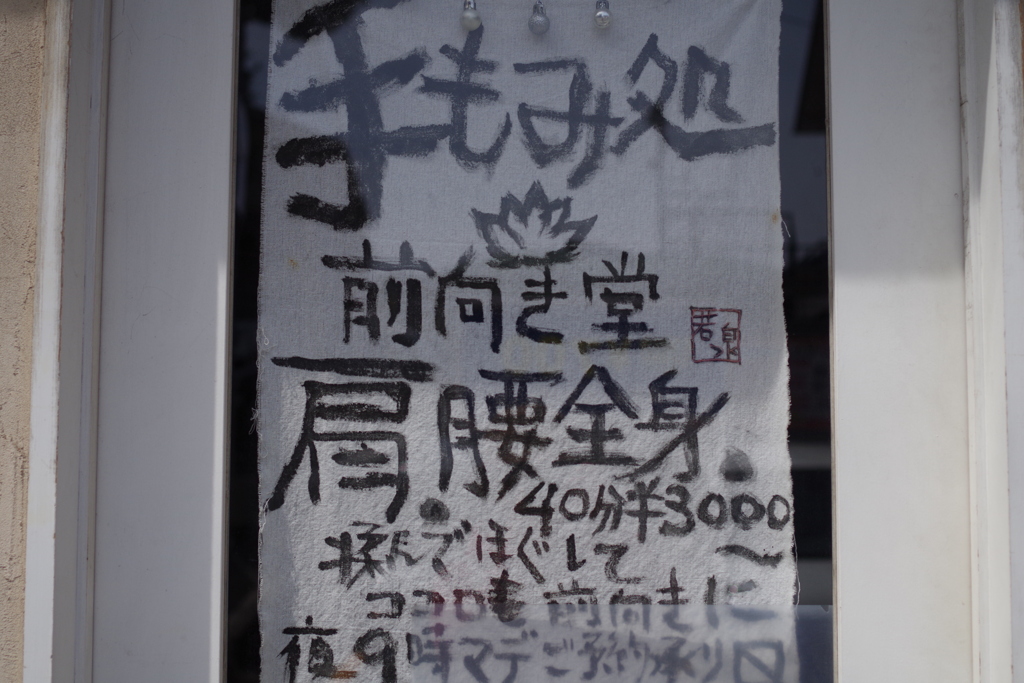 手もみ処
前向き堂
若泉
肩・腰全身・
40分¥3000〜
揉んでほぐして
ココロも前向きに
夜9時マデご予約承り〼